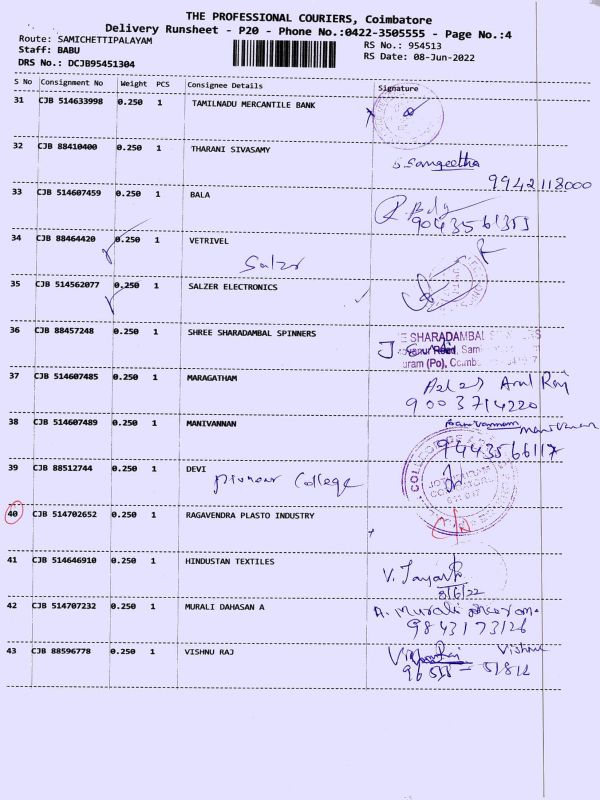 THE PROFESSIONAL COURIERS, Coimbatore
Delivery Runsheet - P20 - Phone No.:0422-3505555 - Page No.:4
Route: SAMICHETTIPALAYAM
Staff: BABU
DRS No.: DCJB95451304
RS No.: 954513
RS Date: 08-Jun-2022
S No Consignment No Weight PCS Consignee Details Signature
31 CJB 514633998 0.250 1 TAMILNADU MERCANTILE BANK
32 CJB 88410400 0.250 1 THARANI SIVASAMY
S. Sangeetha
9942118000
33 CJB 514607459 0.250 1 BALA
34 CJB 88464420 0.250 1 VETRIVEL
Salzer
35 CJB 514562077 0.250 1 SALZER ELECTRONICS
36 CJB 88457248 0.250 1 SHREE SHARADAMBAL SPINNERS
E SHARADAMBAL SPINNERS
37 CJB 514607485 0.250 1 MARAGATHAM
Arul Raj
9003714220
38 CJB 514607489 0.250 1 MANIVANNAN
9443566117
39 CJB 88512744 0.250 1 DEVI
Pioneer College
40 CJB 514702652 0.250 1 RAGAVENDRA PLASTO INDUSTRY
41 CJB 514646910 0.250 1 HINDUSTAN TEXTILES
8/6/22
42 CJB 514707232 0.250 1 MURALI DAHASAN A
A. Murali
9843173126
43 CJB 88596778 0.250 1 VISHNU RAJ
Vishnu